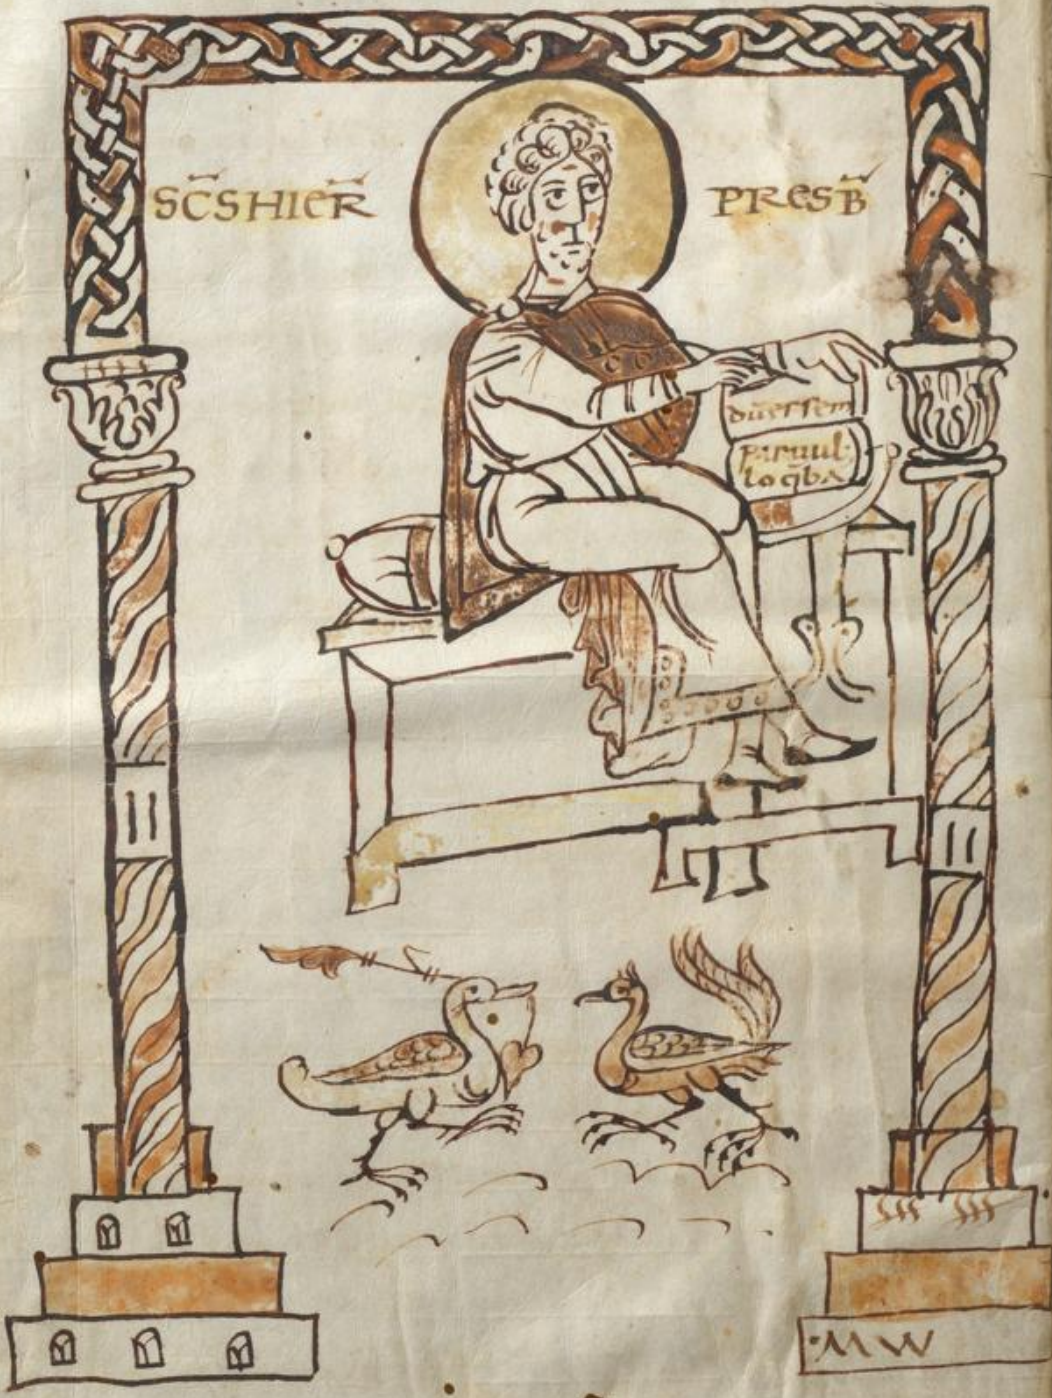 SC̄S HIER̄
PRESB̄
dū essem
paruul·
loq̄ba
·MW